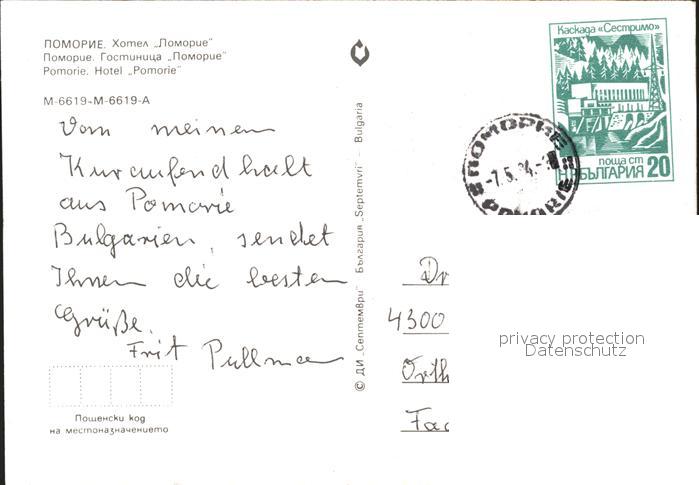 ПОМОРИЕ. Хотел „Поморие"
Поморие. Гостиница „Поморие"
Pomorie. Hotel „Pomorie"
М-6619-М-6619-А
Vom meinen
Kuraufendhalt
aus Pomorie
Bulgarien, sendet
Ihnen die besten
Grüße.
Frit Pullman
Пощенски код
на местоназначението
© ДИ „Септември" България „Septemvri" – Bulgaria
Каскада „Сестримо"
поща ст
НРБЪЛГАРИЯ 20
ПОМОРИЕ
-7.5.84.-
POMORIE
Dr
4300
Orth
Fac
privacy protection
Datenschutz